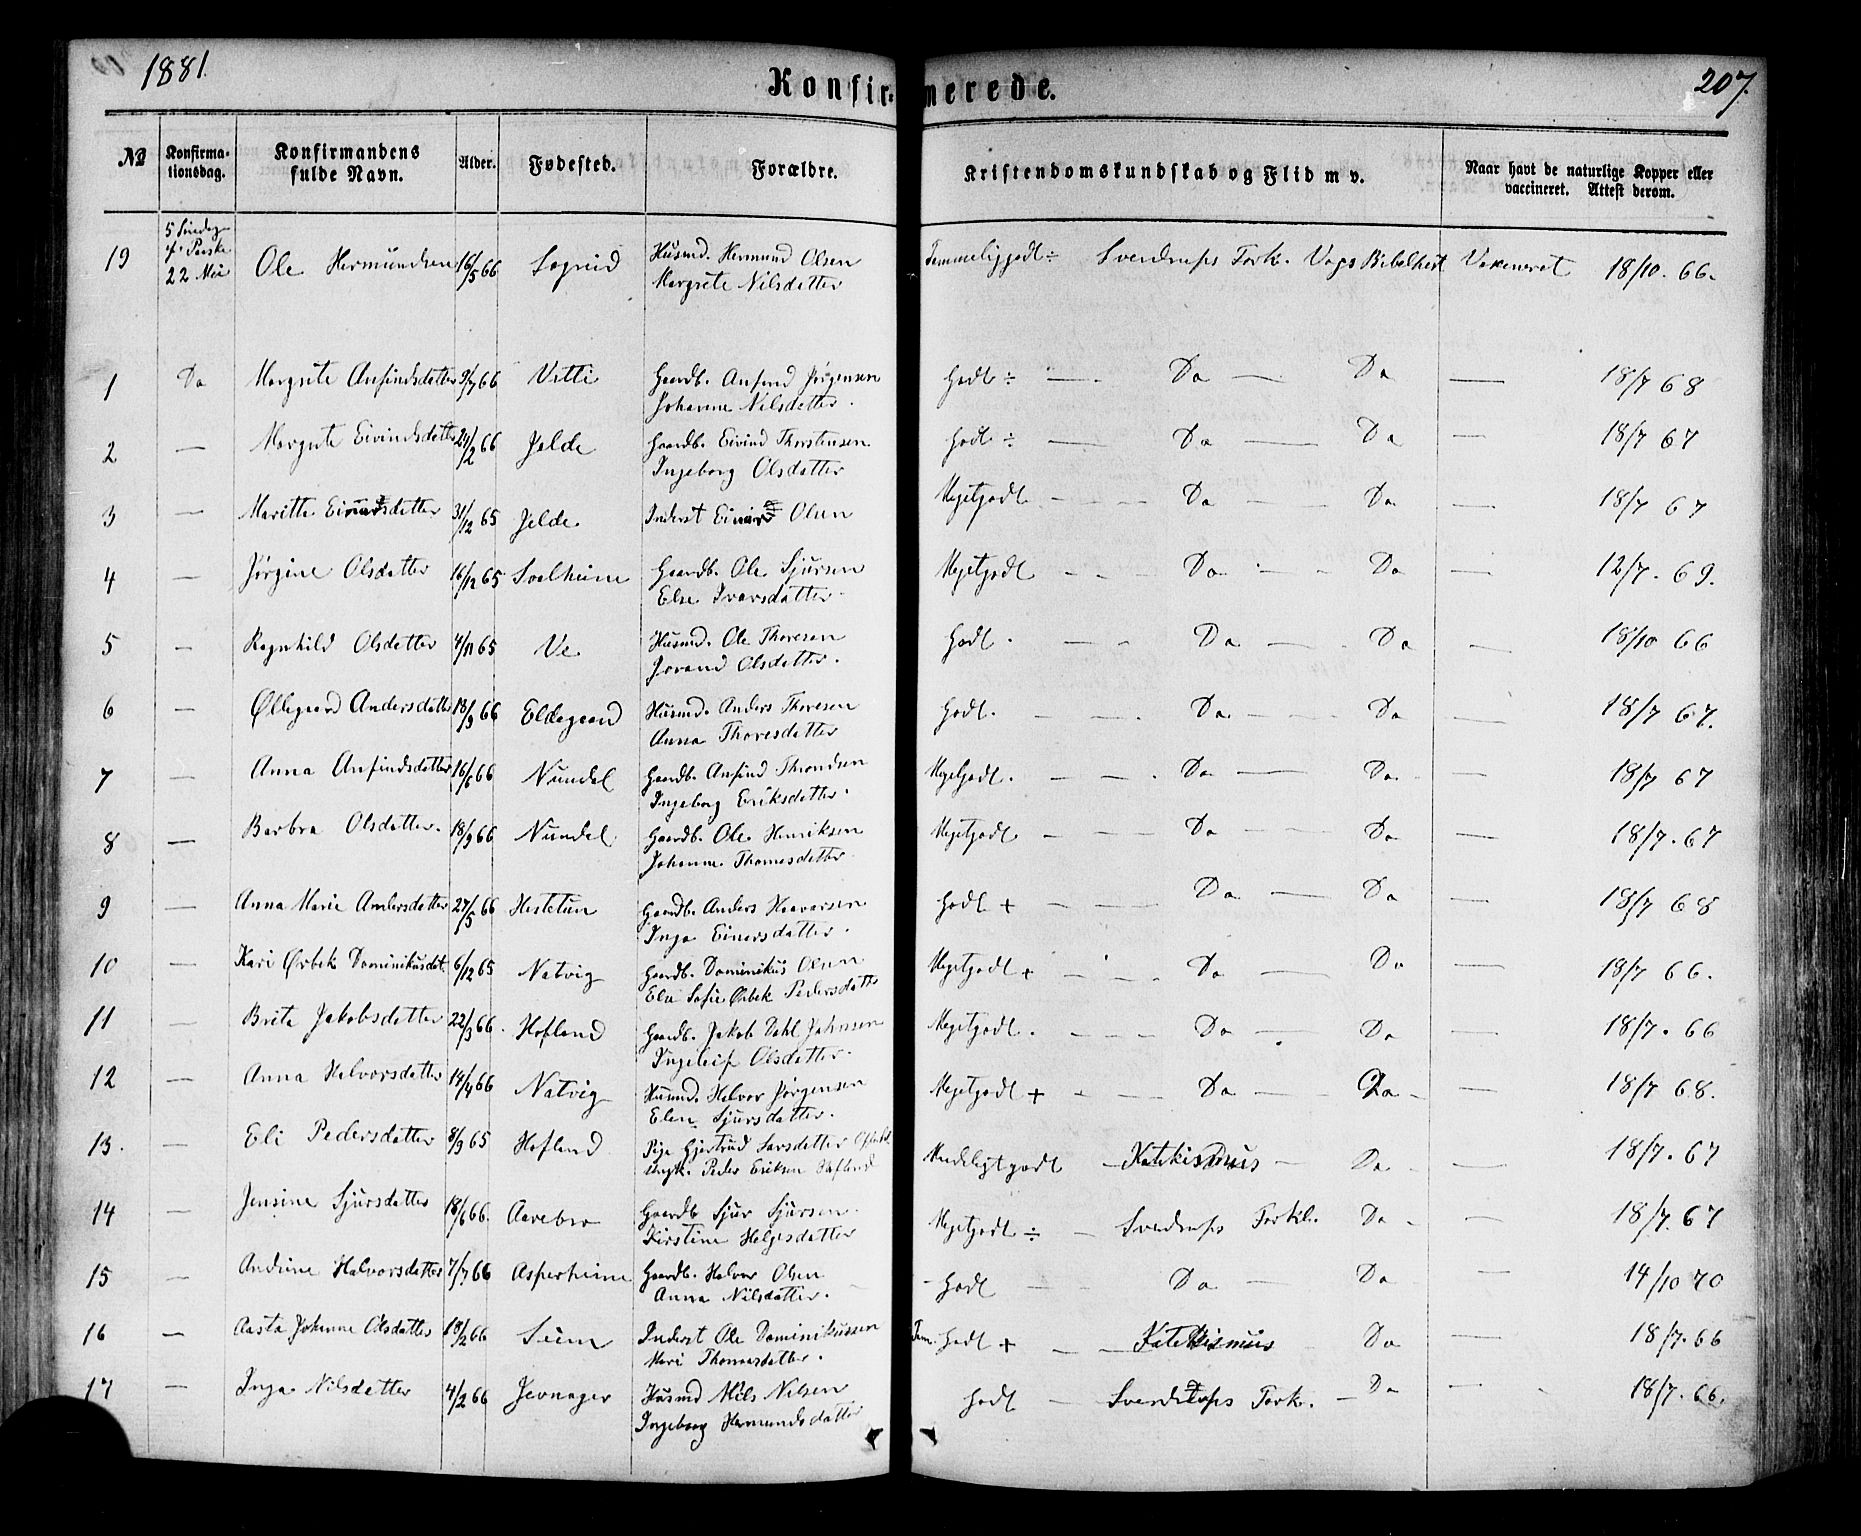 1881.
Konfirmerede.
207.
№ Konfirmationsdag. Konfirmandens fulde Navn. Alder. Fødested. Forældre. Kristendomskundskab og Flid m v. Naar havt de naturlige Kopper eller vaccineret. Attest derom.
19 5 Søndag p. Paaske 22 Mai Ole Hermundsen 16/5 66 Sogrid Husmd. Hermund Olsen Temmeliggodt ÷ Sverdrups Fork. Vogs Bibelhist Vakcineret 18/10. 66.
Margrete Nilsdatter
1 Do Margrete Anfindsdatter 9/7 66 Vetti Gaardb. Anfind Jørgensen Godt ÷ — Do — Do — 18/7 68
Johanne Nilsdatter.
2 — Margrete Eivindsdatter 24/2 66 Jelde Gaardb. Eivind Thorstensen Godt ÷ — Do — Do — 18/7 67
Ingeborg Olsdatter
3 — Maritte Einarsdatter 31/12 65 Jelde Inderst Einar Olsen Megetgodt — Do — Do — 18/7 67
4 — Jørgine Olsdatter 16/12 65 Svalheim Gaardb. Ole Sjursen Megetgodt — Do — Do — 12/7. 69.
Else Ivarsdatter.
5 — Ragnhild Olsdatter 4/11 65 Ve Husmd. Ole Thoresen Godt. — Do — Do — 18/10 66
Jorand Olsdatter.
6 — Øllegaard Andersdatter 18/3 66 Eldegaard Husmd. Anders Thoresen Godt. — Do — Do — 18/7 67.
Anna Thoresdatter
7 — Anna Anfindsdatter 16/6 66 Nundal Gaardb. Anfind Throndsen Megetgodt. — Do — Do — 18/7 67
Ingeborg Eriksdatter.
8 — Barbra Olsdatter. 18/3 66 Nundal Gaardb. Ole Henriksen Megetgodt — Do — Do — 18/7. 67
Johanne Thomasdatter
9 — Anna Marie Andersdatter 27/5 66 Hestetun Gaardb. Anders Haavarsen Godt + — Do — Do — 18/7 68
Inga Einersdatter.
10 — Kari Ørbek Dominikusdat. 6/12 65 Natvig Gaardb. Dominikus Olsen Megetgodt + — Do — Do — 18/7 66.
Eli Sofie Ørbek Pedersdatter
11 — Brita Jakobsdatter 22/3 66. Hofland Gaardb. Jakob Dahl Johnsen Megetgodt. — Do — Do — 18/7. 66
Ingeleif Olsdatter.
12 — Anna Halvorsdatter 14/4 66 Natvig Husmd. Halvor Jørgensen Megetgodt + — Do — Do — 18/7 68.
Elen Sjursdatter.
13. — Eli Pedersdatter 8/9 65 Hofland Pige Gjertrud Larsdatter Ofsdal Mndeligtgodt — Katekismus — Do — 18/7. 67
Ungk. Peder Eriksen Hofland
14 — Jensine Sjursdatter 18/6 66. Aarebro Gaardb Sjur Sjursen Megetgodt ÷ — Sverdrups Forkl. Do — 18/7. 67
Kirstine Helgesdatter
15 — Andrine Halvorsdatter 7/7 66 Asperheim Gaardb. Halvor Olsen Godt — Do — Do — 14/10 70
Anna Nilsdatter.
16 — Aasta Johanne Olsdatter 19/2 66 Seim Inderst Ole Dominikussen Tem. Godt + — Katekismus Do — 18/7. 66
Mari Thomasdatter.
17 — Inga Nilsdatter 4/2 66 Jevnager Husmd Nils Nilsen Godt — Sverdrups Fork. — Do — 18/7. 66.
Ingeborg Hermundsdatter